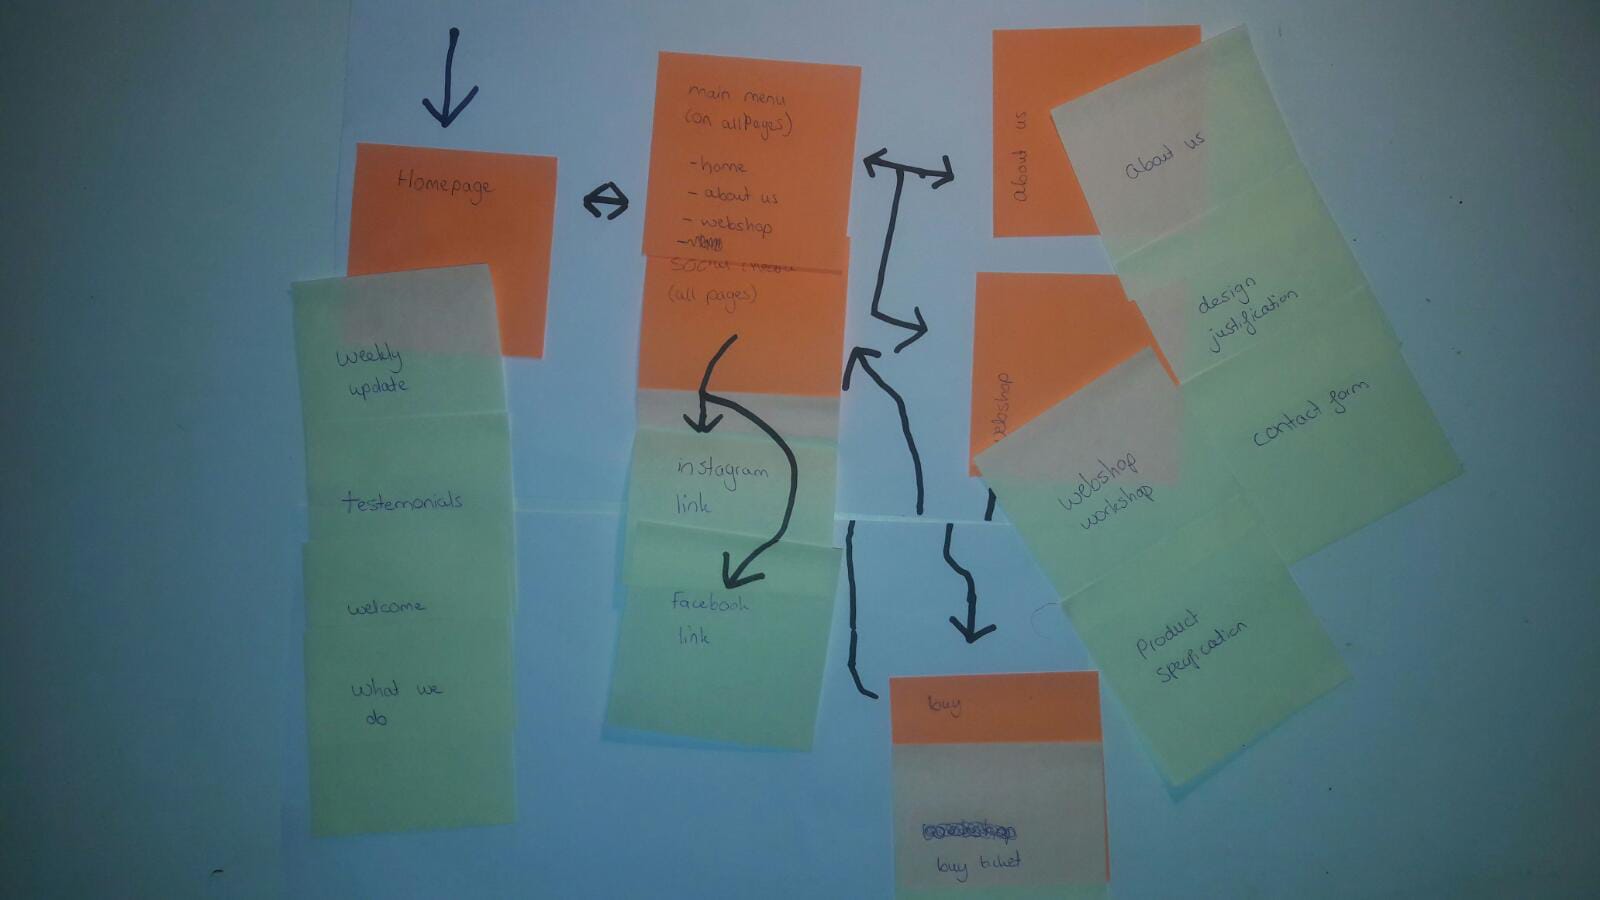 Homepage
weekly
update
testemonials
welcome
What we
do
main menu
(on allPages)
- home
- about us
- webshop
-
social
(all pages)
instagram
link
Facebook
link
about us
about us
design
justification
contact form
webshop
webshop
workshop
Product
specification
buy
buy ticket